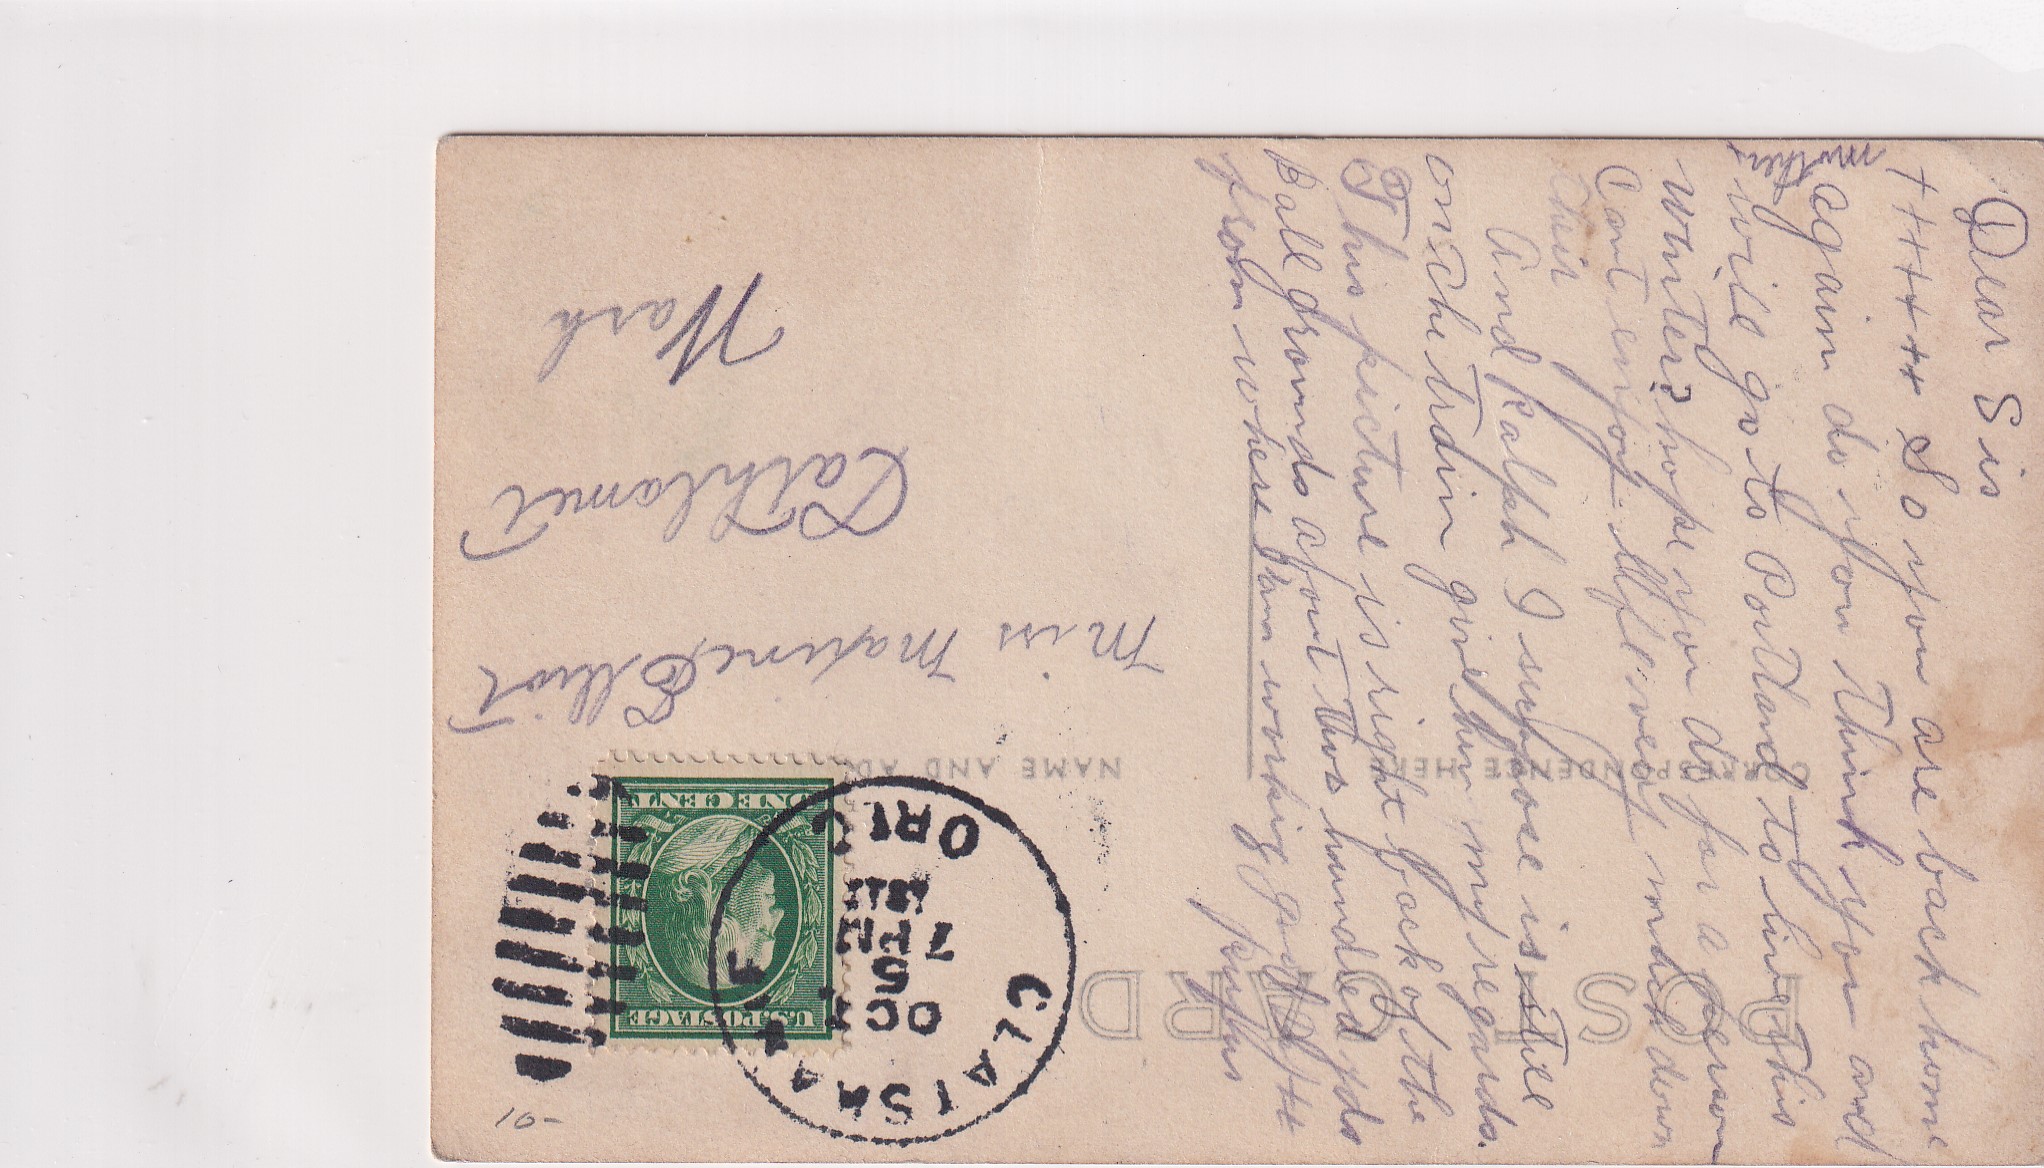 POST CARD
CORRESPONDENCE HERE
NAME AND AD
Dear Sis
++++++ So you are back home
again do you think you and
mother
will go to Portland to live this
winter? hope you do for a person
cant enjoy life very much down
their
And Ralph I suppose is still
on the train give him my regards.
This picture is right back of the
Ball grounds about two hundred yds
from where I am working
U.S. POSTAGE
ONE CENT
CLATSKANIE
OCT
5
7 PM
1912
OREG
Miss Maxine Elliot
Cathlamet
Wash
10-